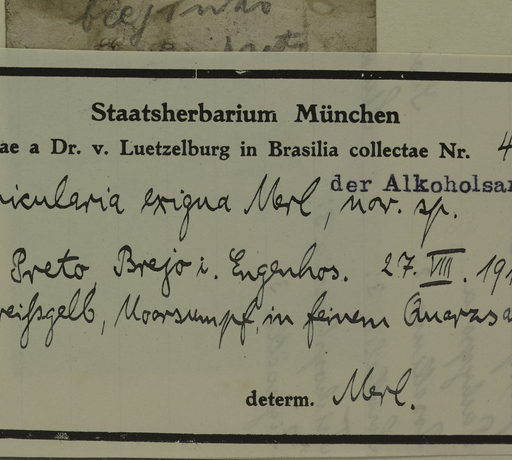 brejinho
Staatsherbarium München
ae a Dr. v. Luetzelburg in Brasilia collectae Nr. 4
der Alkoholsa
icularia exigua Merl, nov. sp.
Preto, Brejo i. Engenhos. 27. VIII. 191
eißgelb, Moorsumpf, in feinem Quarzsa
determ. Merl.